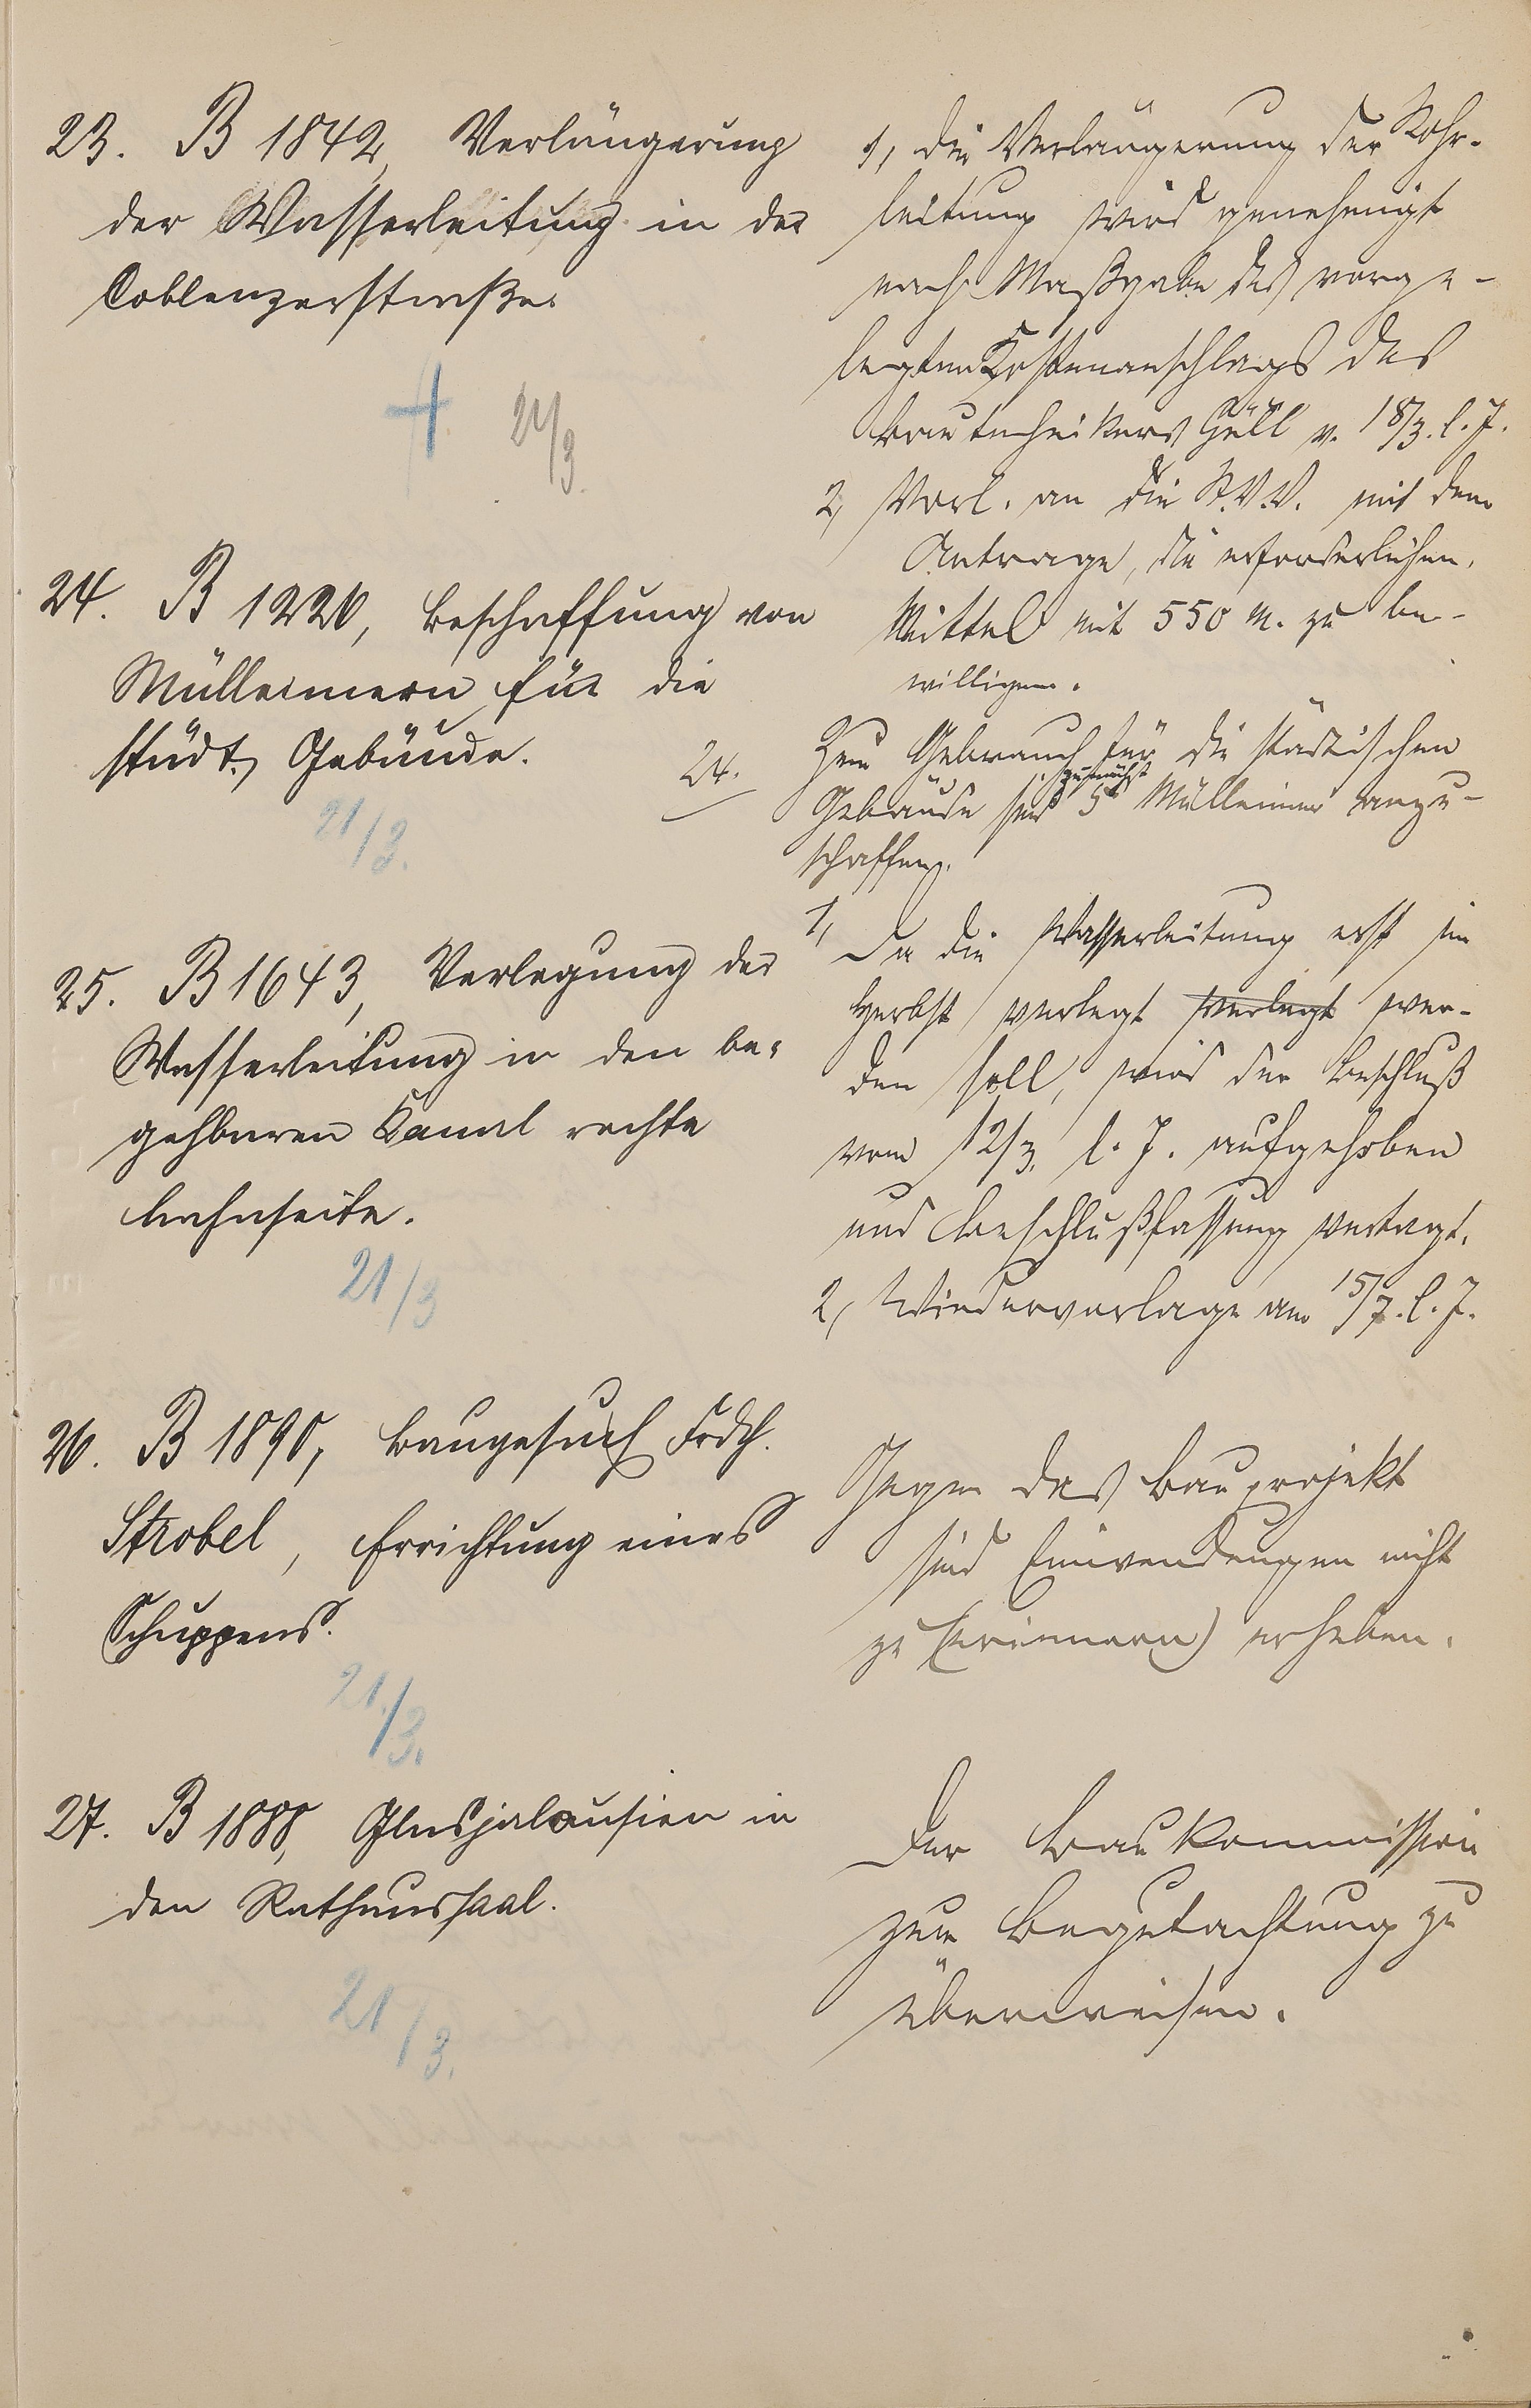 23. B 1842, Verlängerung
der Wasserleitung in der
Coblenzerstraße.
21/3.
1, Die Verlängerung der Rohr-
leitung wird genehmigt
nach Maßgabe des vorge-
legten Kostenanschlags des
Bautechnikers Güll v. 18/3. l. J.
2, Vorl. an die St.V.V. mit dem
Antrage, die erforderlichen
Mittel mit 550 M. zu be-
willigen.
24. B 1226, Beschaffung von
Mülleimern für die
städt. Gebäude.
21/3.
24.
Zum Gebrauch für die städtischen
zunächst
Gebäude sind 5 Mülleimer anzu-
schaffen.
25. B 1643, Verlegung der
Wasserleitung in den be-
gehbaren Kanal rechte
Lahnseite.
21/3
1, Da die Wasserleitung erst im
Herbst verlegt verlegt wer-
den soll, wird der Beschluß
vom 12/3. l. J. aufgehoben
und Beschlußfassung vertagt.
2, Wiedervorlage am 15/7. l. J.
26. B 1890, Baugesuch Frdch.
Strobel, Errichtung eines
Schuppens.
21./3.
Gegen das Bauprojekt
sind Einwendungen nicht
zu (erinnern) erheben.
27. B 1888, Glasjalousien in
den Rathaussaal.
21/3.
Der Baukommission
zur Begutachtung zu
überweisen.